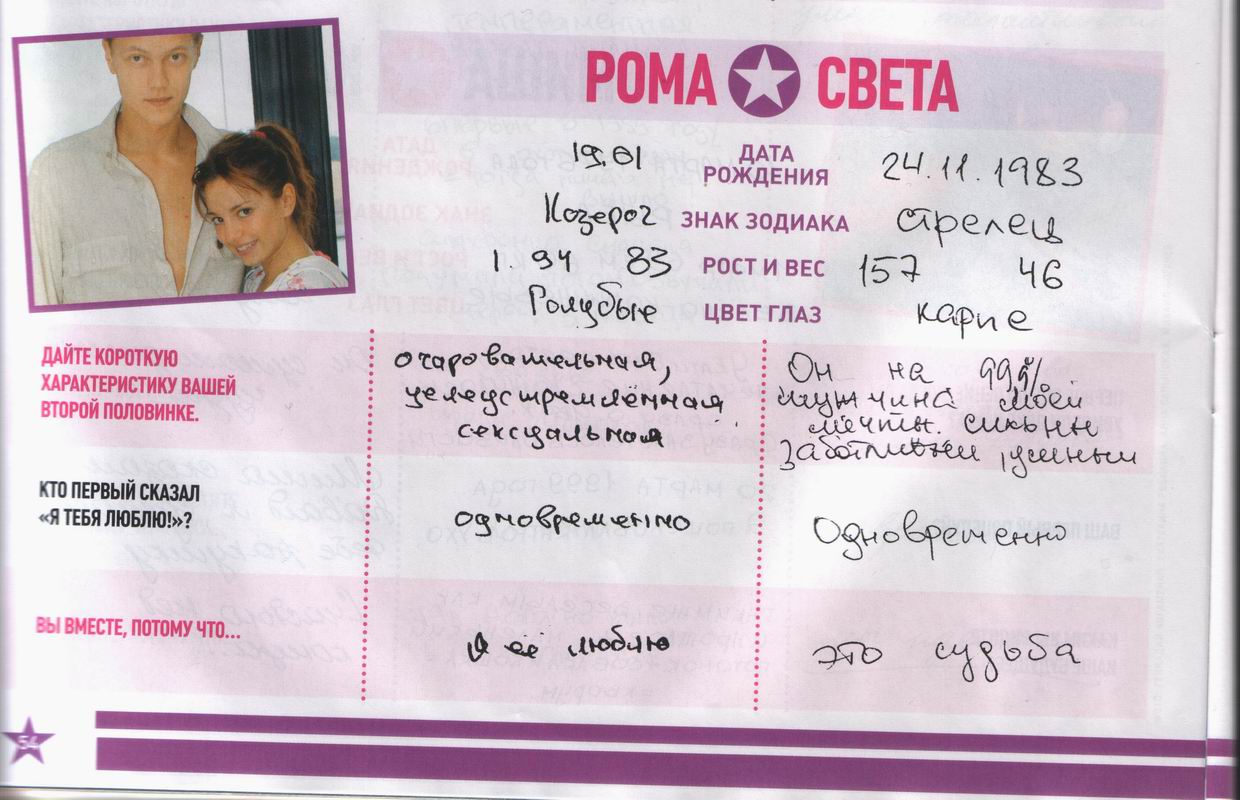 РОМА СВЕТА
19.01 ДАТА РОЖДЕНИЯ 24.11.1983
Козерог ЗНАК ЗОДИАКА стрелец
1.94 83 РОСТ И ВЕС 157 46
Голубые ЦВЕТ ГЛАЗ карие
ДАЙТЕ КОРОТКУЮ
ХАРАКТЕРИСТИКУ ВАШЕЙ
ВТОРОЙ ПОЛОВИНКЕ.
очаровательная,
целеустремлённая
сексуальная
Он на 99%
мужчина моей
мечты. сильный
заботливый, умный
КТО ПЕРВЫЙ СКАЗАЛ
«Я ТЕБЯ ЛЮБЛЮ!»?
одновременно
Одновременно
ВЫ ВМЕСТЕ, ПОТОМУ ЧТО...
Я ее люблю
это судьба
54